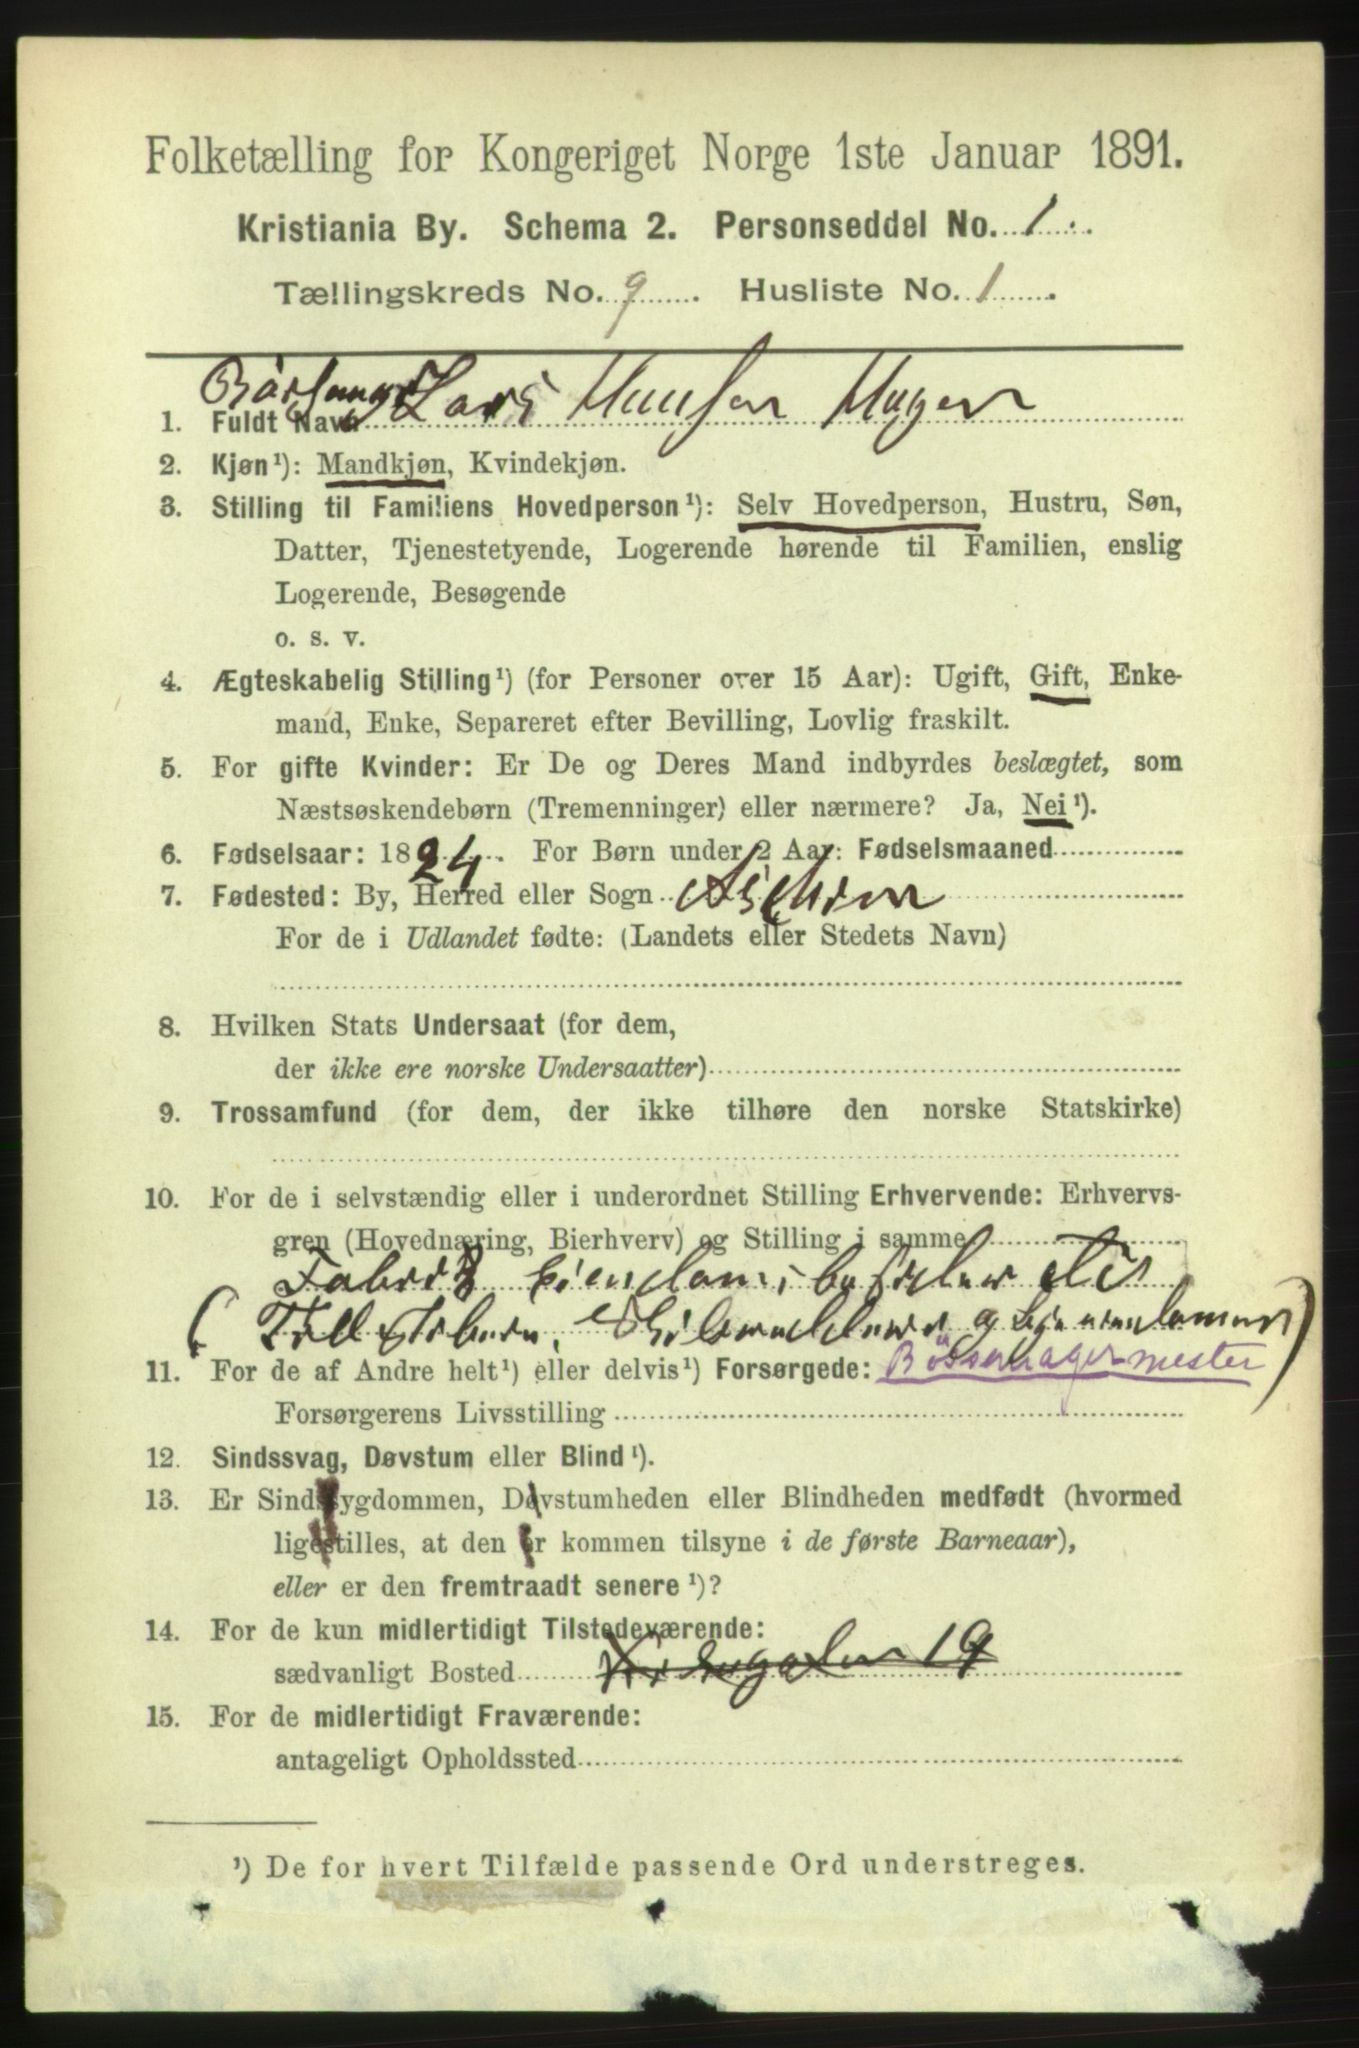 Folketælling for Kongeriget Norge 1ste Januar 1891.
Kristiania By. Schema 2. Personseddel No. 1.
Tællingskreds No. 9. Husliste No. 1.
1. Fuldt Navn Lars Hansen Hagen
2. Kjøn¹): Mandkjøn, Kvindekjøn.
3. Stilling til Familiens Hovedperson¹): Selv Hovedperson, Hustru, Søn,
Datter, Tjenestetyende, Logerende hørende til Familien, enslig
Logerende, Besøgende
o. s. v.
4. Ægteskabelig Stilling¹) (for Personer over 15 Aar): Ugift, Gift, Enke-
mand, Enke, Separeret efter Bevilling, Lovlig fraskilt.
5. For gifte Kvinder: Er De og Deres Mand indbyrdes beslægtet, som
Næstsøskendebørn (Tremenninger) eller nærmere? Ja, Nei¹).
6. Fødselsaar: 1824. For Børn under 2 Aar: Fødselsmaaned
7. Fødested: By, Herred eller Sogn Aschim
For de i Udlandet fødte: (Landets eller Stedets Navn)
8. Hvilken Stats Undersaat (for dem,
der ikke ere norske Undersaatter)
9. Trossamfund (for dem, der ikke tilhøre den norske Statskirke)
10. For de i selvstændig eller i underordnet Stilling Erhvervende: Erhvervs-
gren (Hovednæring, Bierhverv) og Stilling i samme
Fabrik
11. For de af Andre helt¹) eller delvis¹) Forsørgede: Bøssemagermester
Forsørgerens Livsstilling
12. Sindssvag, Døvstum eller Blind¹).
13. Er Sindssygdommen, Døvstumheden eller Blindheden medfødt (hvormed
ligestilles, at den er kommen tilsyne i de første Barneaar),
eller er den fremtraadt senere¹)?
14. For de kun midlertidigt Tilstedeværende:
sædvanligt Bosted 19
15. For de midlertidigt Fraværende:
antageligt Opholdssted
¹) De for hvert Tilfælde passende Ord understreges.